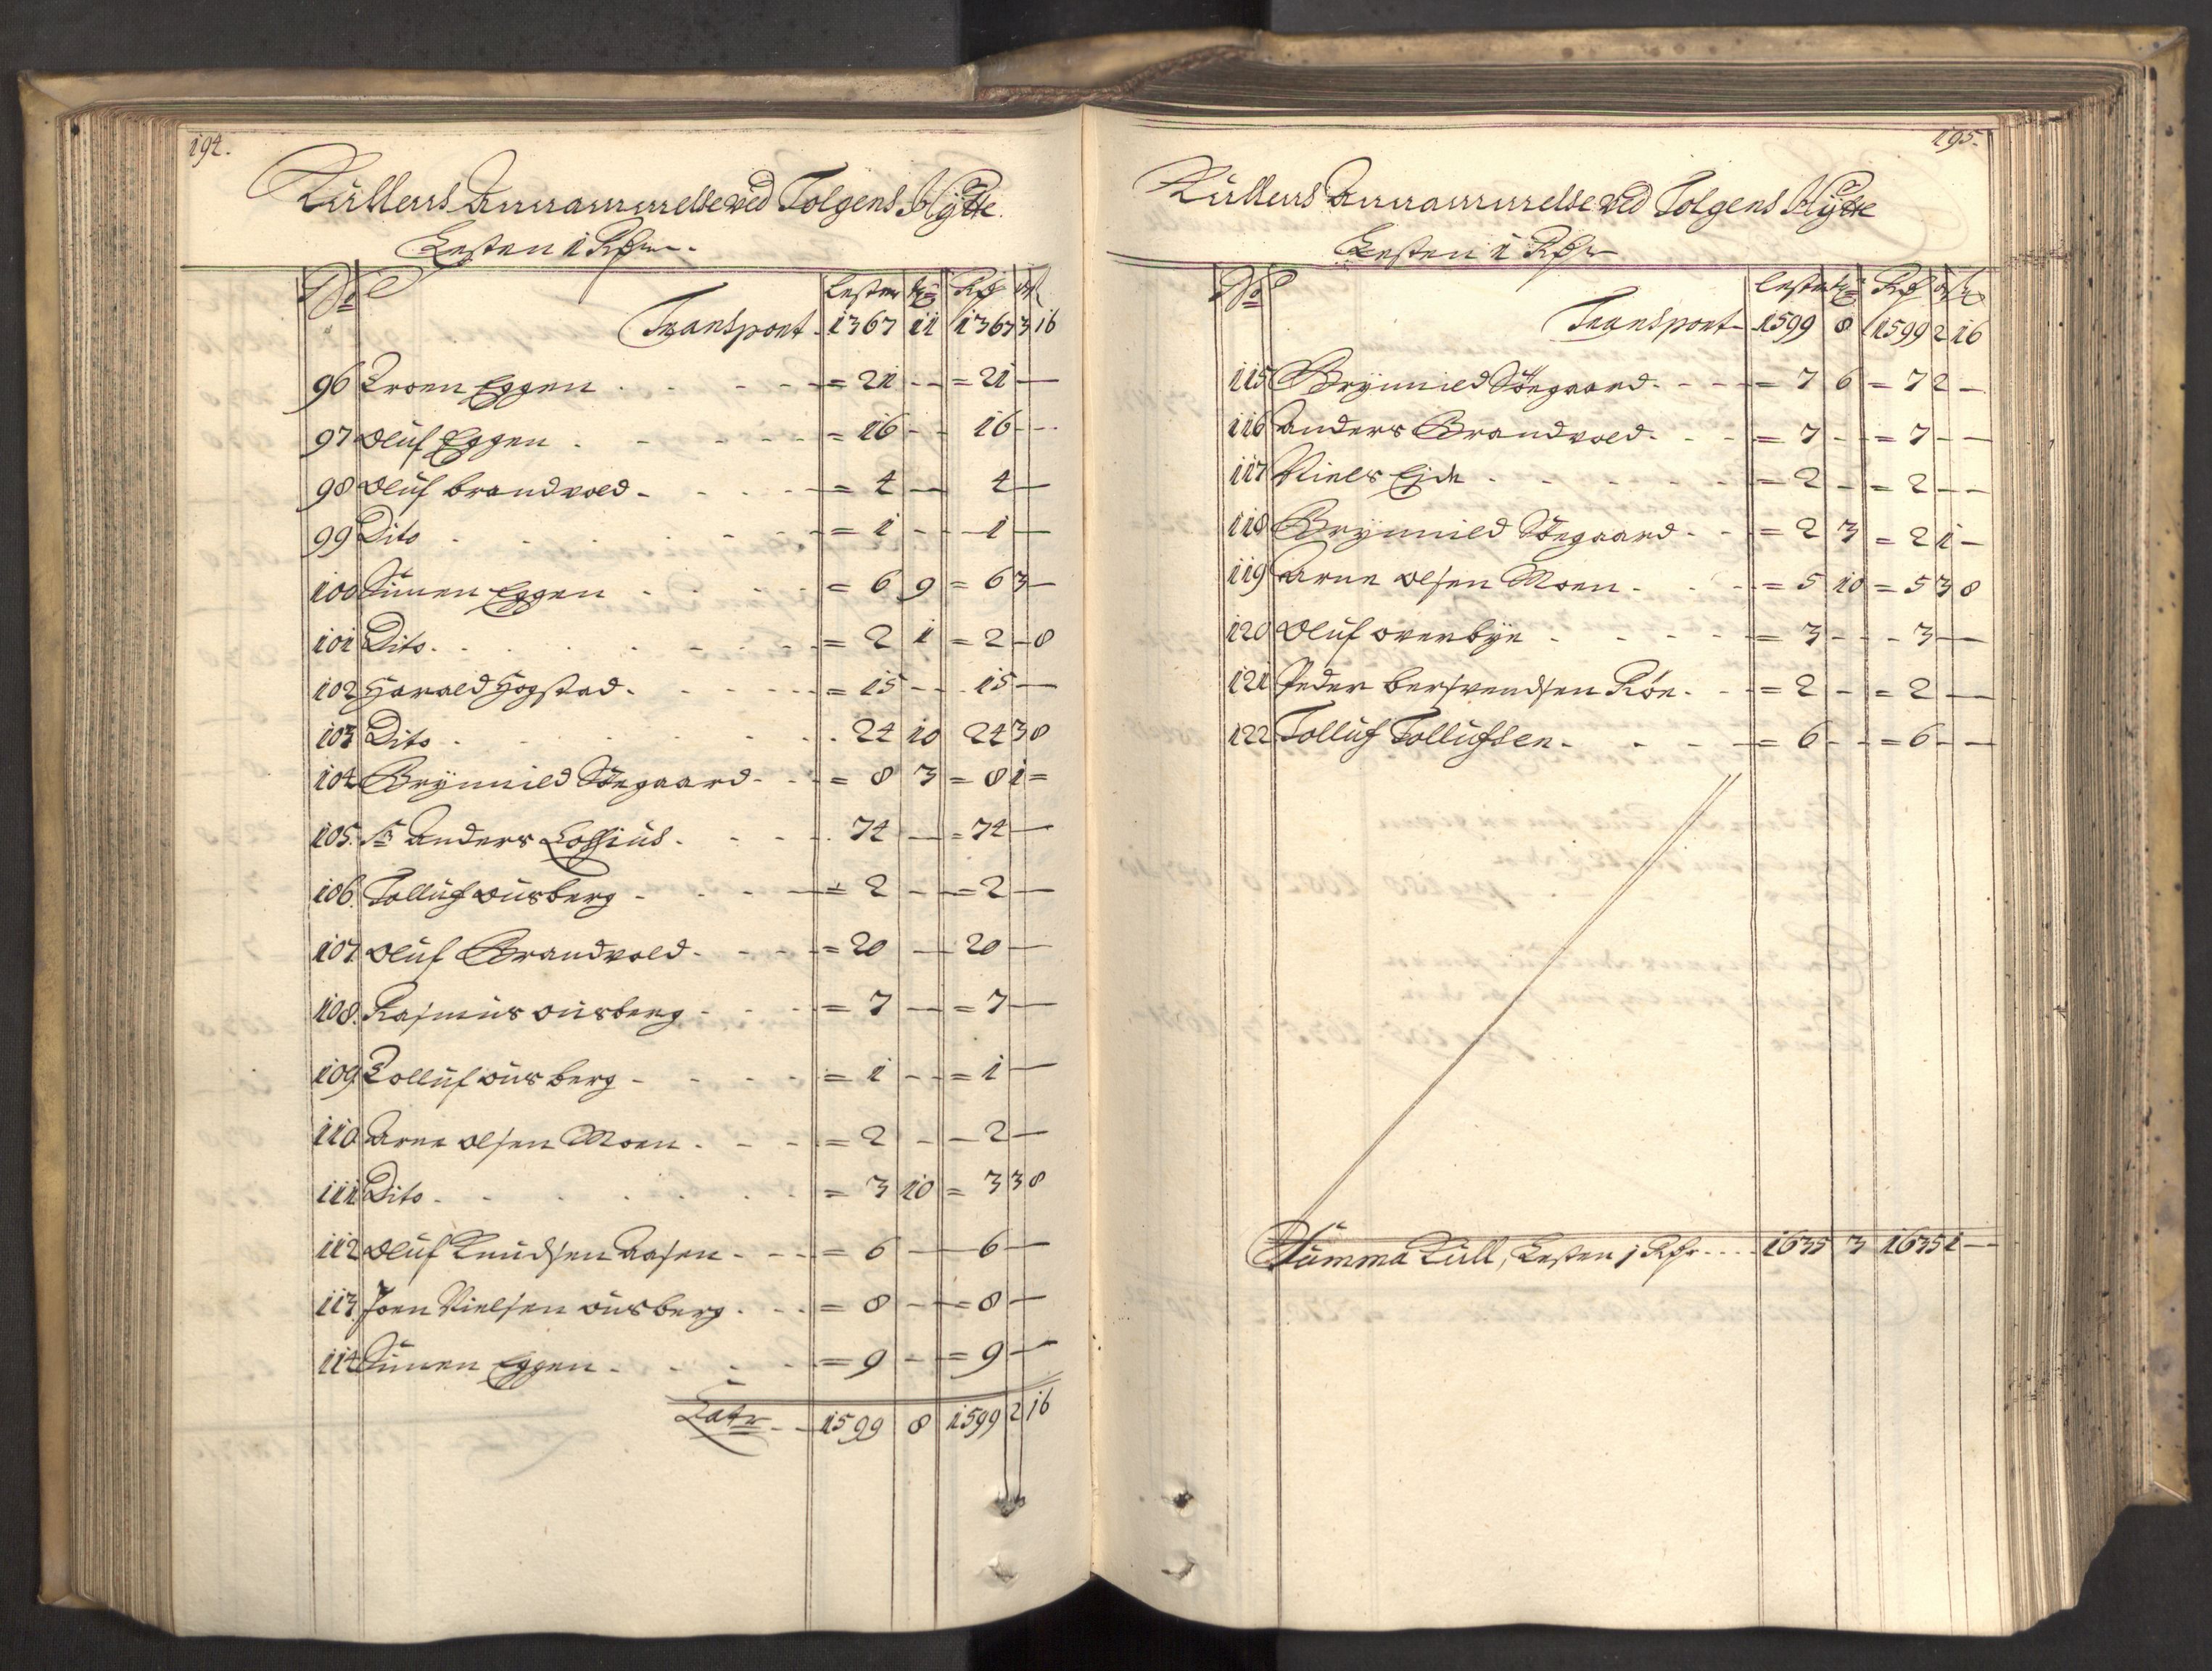 194.
Kullens Annammelse ved Tolgens Hÿtte.
Lesten 1 Rdr.
No
Lester tr Rd ort s
Transport 1367 11 1367 3 16
96 Troen Eggen = 21 - = 21 -
97 Oluf Eggen = 16 - 16 -
98 Oluf brandvold = 4 - 4 -
99 Dito = 1 - 1 -
100 Simen Eggen = 6 9 = 6 3 -
101 Dito = 2 1 = 2 - 8
102 Harald Hogstad = 15 - 15 -
103 Dito 24 10 24 3 8
104 Brÿnnild Nÿegaard = 8 3 = 8 1 =
105. Sr Anders Lossius 74 - = 74 -
106. Tolluf ousberg = 2 - = 2 -
107. Oluf Brandvold = 20 - 20 -
108. Rasmus ousberg = 7 - = 7 -
109 Tolluf ousberg = 1 - = 1 -
110 Arne olsen Moen = 2 - 2 -
111 Dito = 3 10 = 3 3 8
112 Oluf Knudsen Aasen = 6 - 6 -
113. Joen Nielsen ousberg = 8 - = 8 -
114 Simen Eggen = 9 - = 9 -
Latr 1599 8 1599 2 16
195.
Kullens Annammelse ved Tolgens Hÿtte
Lesten 1 Rdr
No
Lester tr Rd ort s
Transport 1599 8 1599 2 16
115 Brÿnnild Nÿegaard = 7 6 = 7 2 -
116 Anders Brandvold = 7 - = 7 - -
117 Niels Eide = 2 - = 2 - -
118 Brÿnnild Nÿegaard = 2 3 = 2 1 -
119 Arne olsen Moen = 5 10 = 5 3 8
120 Oluf overbÿe = 3 - - 3 -
121 Peder bersvendsen Røe = 2 - = 2 -
122 Tolluf Tollufsen = 6 - = 6 - -
Summa Kull, Lesten 1 Rdr 1635 3 1635 1 -